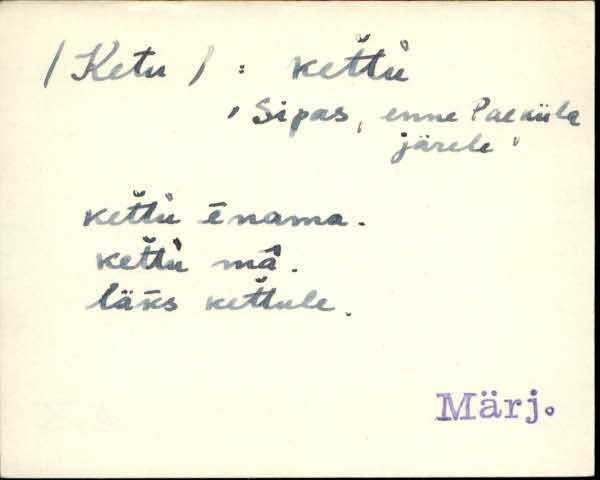 /Ketu/ : keťtù
'Sipas, enne Paeküla
järele'
keťtù ēnama.
keťtù mâ.
läks keťtule.
Märj.